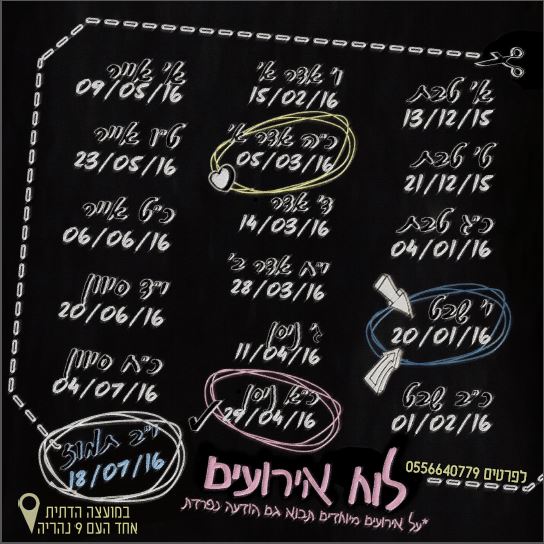 א' טבת
13/12/15
ט' טבת
21/12/15
כ"ג טבת
04/01/16
י' שבט
20/01/16
כ"ב שבט
01/02/16
ו' אדר א'
15/02/16
כ"ה אדר א'
05/03/16
ד' אדר
14/03/16
י"ח אדר ב'
28/03/16
ג' ניסן
11/04/16
כ"א ניסן
29/04/16
א' אייר
09/05/16
ט"ו אייר
23/05/16
כ"ט אייר
06/06/16
י"ד סיוון
20/06/16
כ"ח סיוון
04/07/16
י"ב תמוז
18/07/16
לוח אירועים
*על אירועים מיוחדים תבוא גם הודעה נפרדת
לפרטים 0556640779
במועצה הדתית
אחד העם 9 נהריה